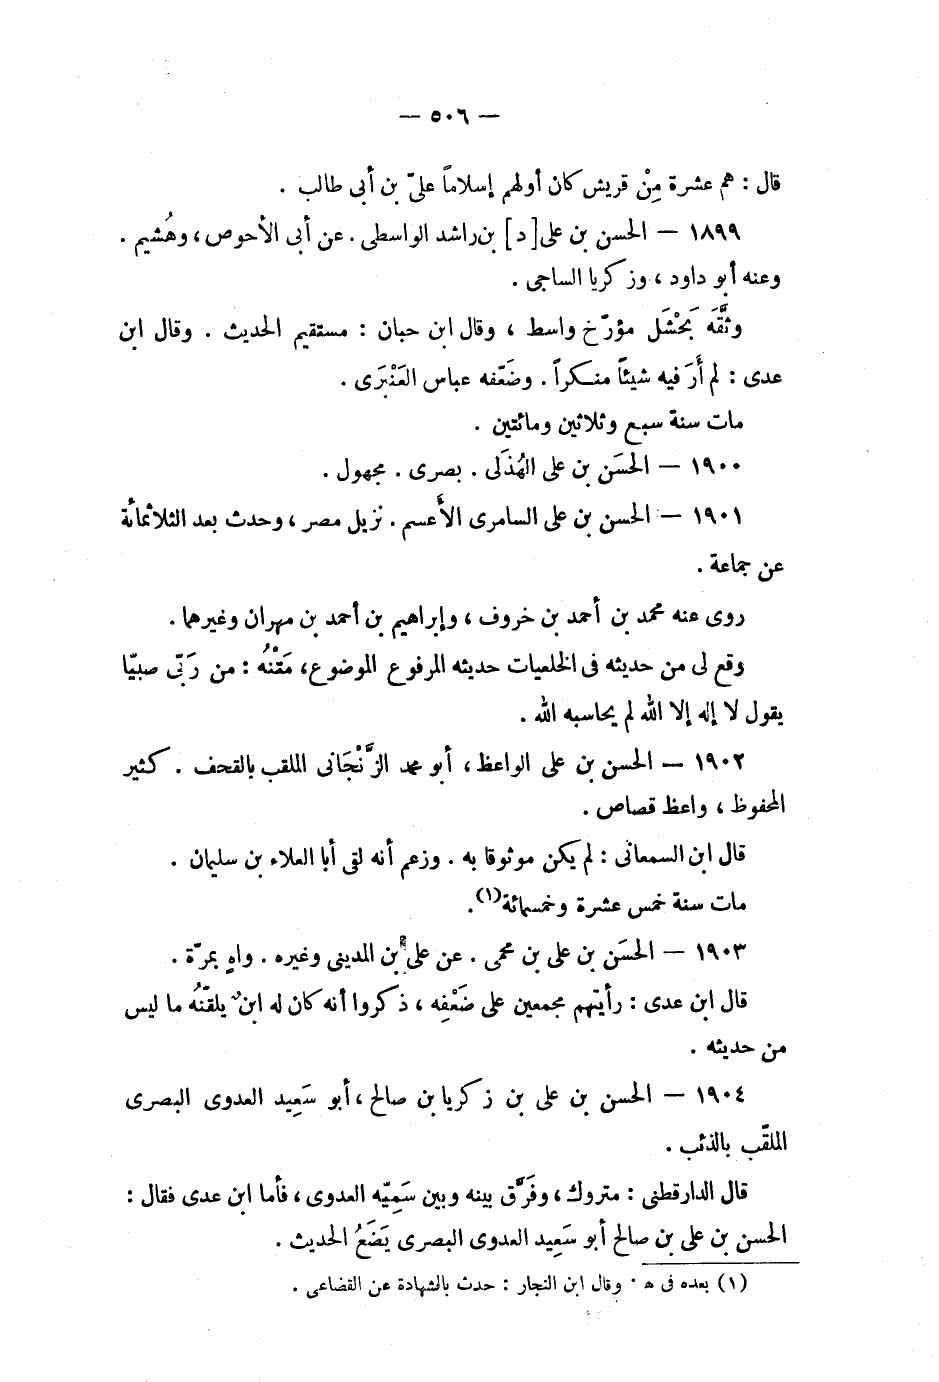 — ٥٠٦ —
قال : هم عشرة مِنْ قريش كان أولهم إسلاماً علىّ بن أبى طالب .
١٨٩٩ — الحسن بن على [ د ] بن راشد الواسطى . عن أبى الأحوص ، وهُشيم .
وعنه أبو داود ، وزكريا الساجى .
وثَّقَه بَحْشَل مؤرّخ واسط ، وقال ابن حبان : مستقيم الحديث . وقال ابن
عدى : لم أَرَ فيه شيئاً منكراً . وضَعّفه عباس العَنْبَرَى .
مات سنة سبع وثلاثين ومائتين .
١٩٠٠ — الحسَن بن على الهُذَلى . بصرى . مجهول .
١٩٠١ — الحسن بن على السامرى الأَعسم . نزيل مصر ، وحدث بعد الثلاثمائة
عن جماعة .
روى عنه محمد بن أحمد بن خروف ، وإبراهيم بن أحمد بن مهران وغيرهما .
وقع لى من حديثه فى الخلعيات حديثه المرفوع الموضوع ، مَتْنُه : من رَبّى صبيّا
يقول لا إله إلا الله لم يحاسبه الله .
١٩٠٢ — الحسن بن على الواعظ ، أبو محمد الزَّنْجَانى الملقب بالقحف . كثير
المحفوظ ، واعظ قصاص .
قال ابن السمعانى : لم يكن موثوقا به . وزعم أنه لقى أبا العلاء بن سليمان .
مات سنة خمس عشرة وخمسمائة (١) .
١٩٠٣ — الحسَن بن على بن محمى . عن على بن المدينى وغيره . واهٍ بمرّة .
قال ابن عدى : رأيتهم مجمعين على ضَعْفِه ، ذكروا أنه كان له ابنٌ يلقّنُه ما ليس
من حديثه .
١٩٠٤ — الحسن بن على بن زكريا بن صالح ، أبو سَعِيد العدوى البصرى
الملقّب بالذئب .
قال الدارقطنى : متروك ، وفَرَّق بينه وبين سَمِيّه العدوى ، فأما ابن عدى فقال :
الحسن بن على بن صالح أبو سَعِيد العدوى البصرى يَضَعُ الحديث .
(١) بعده فى هـ . وقال ابن النجار : حدث بالشهادة عن القضاعى .